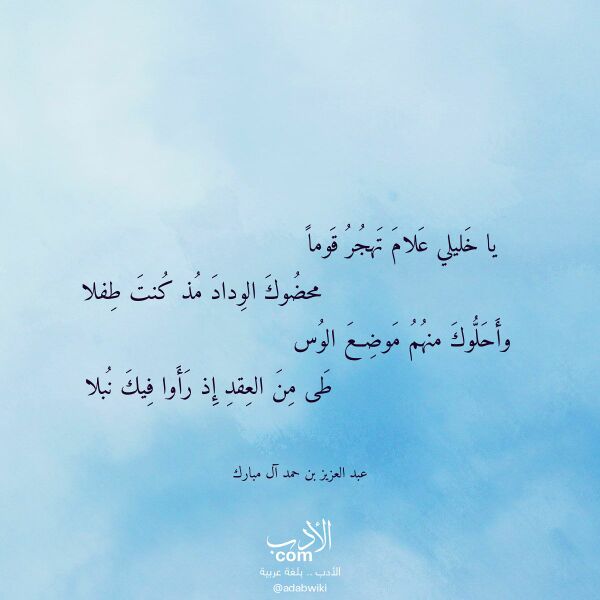 يا خَليلي عَلامَ تَهجُرُ قَوماً
محضُوكَ الوِدادَ مُذ كُنتَ طِفلا
وأَحَلُّوكَ منهُمُ مَوضِعَ الوُس
طَى مِنَ العِقدِ إِذ رَأَوا فِيكَ نُبلا
عبد العزيز بن حمد آل مبارك
الأدب
com
الأدب .. بلغة عربية
@adabwiki